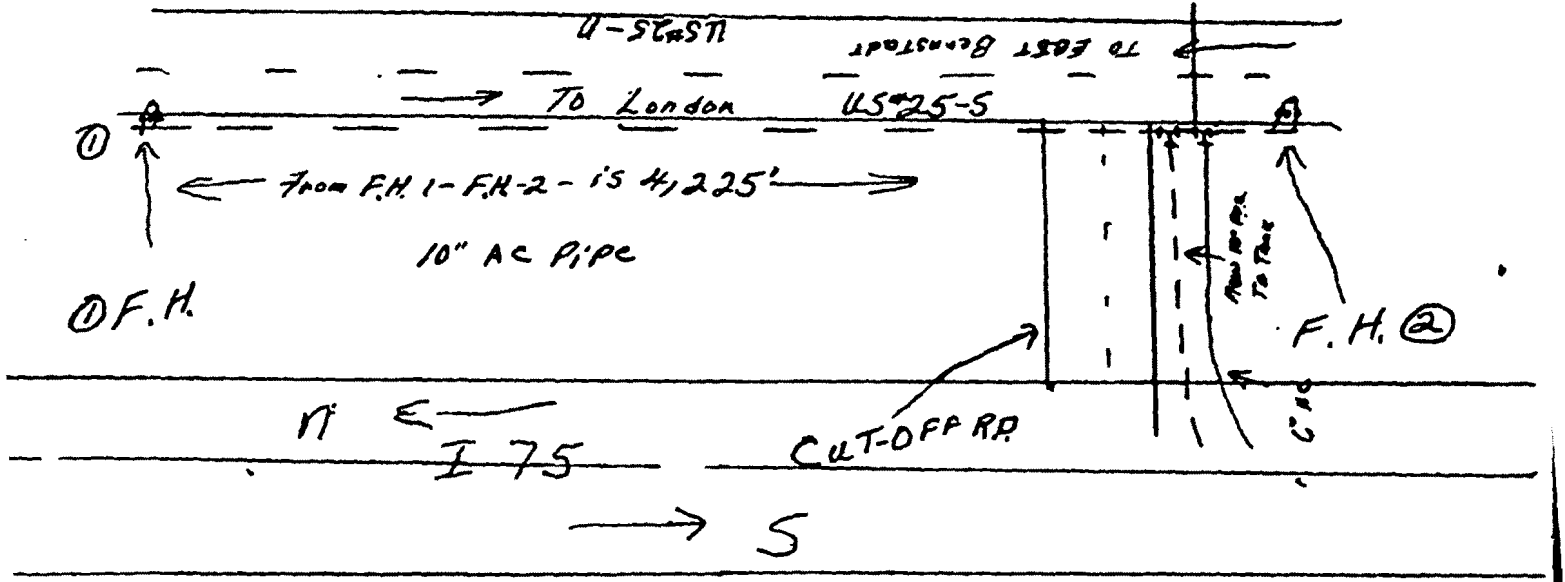 US#25-N
To EAST Bernstadt
To London US#25-S
①
From F.H. 1-F.H-2- is 4,225'
10" AC PIPE
① F. H.
New 10" P.V.C.
To Tank
F. H. ②
6" AC
CUT-OFF RD.
N
I 75
S